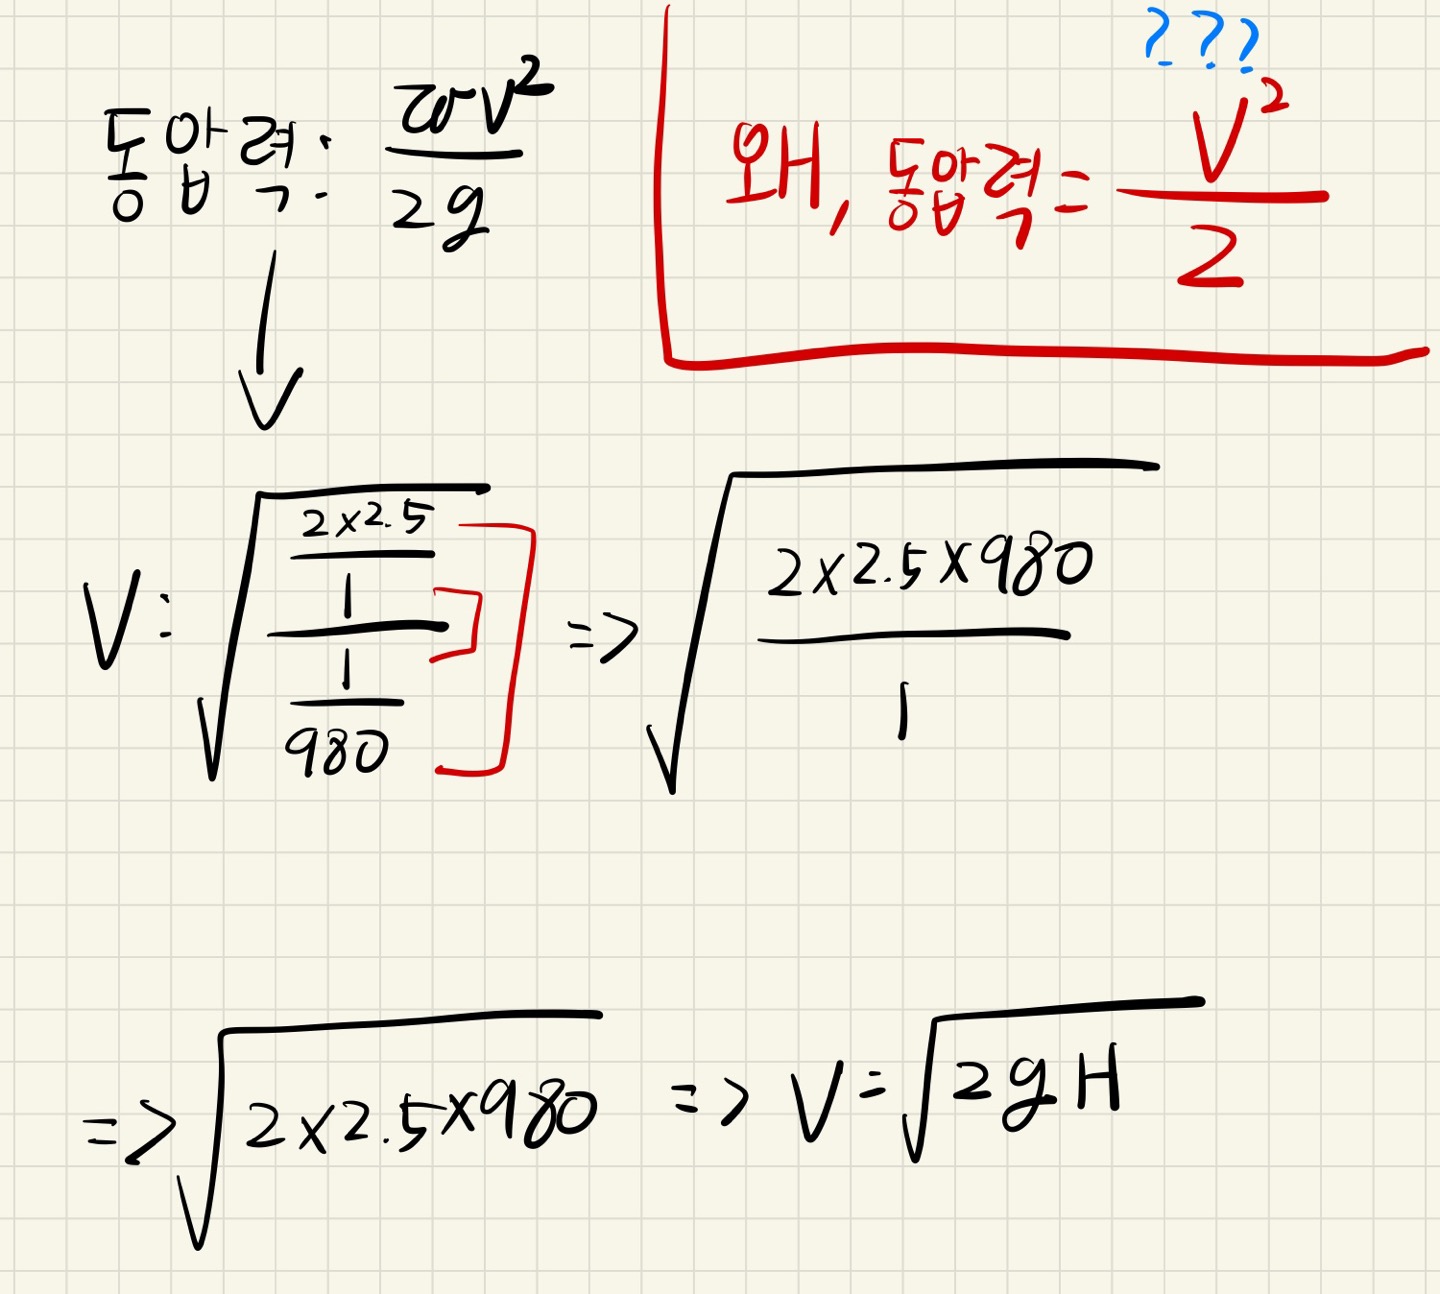 동압력: wV²/2g
???
왜, 동압력 = V²/2
V = √((2×2.5/1)/(1/980)) => √(2×2.5×980/1)
=> √(2×2.5×980) => V = √(2gH)